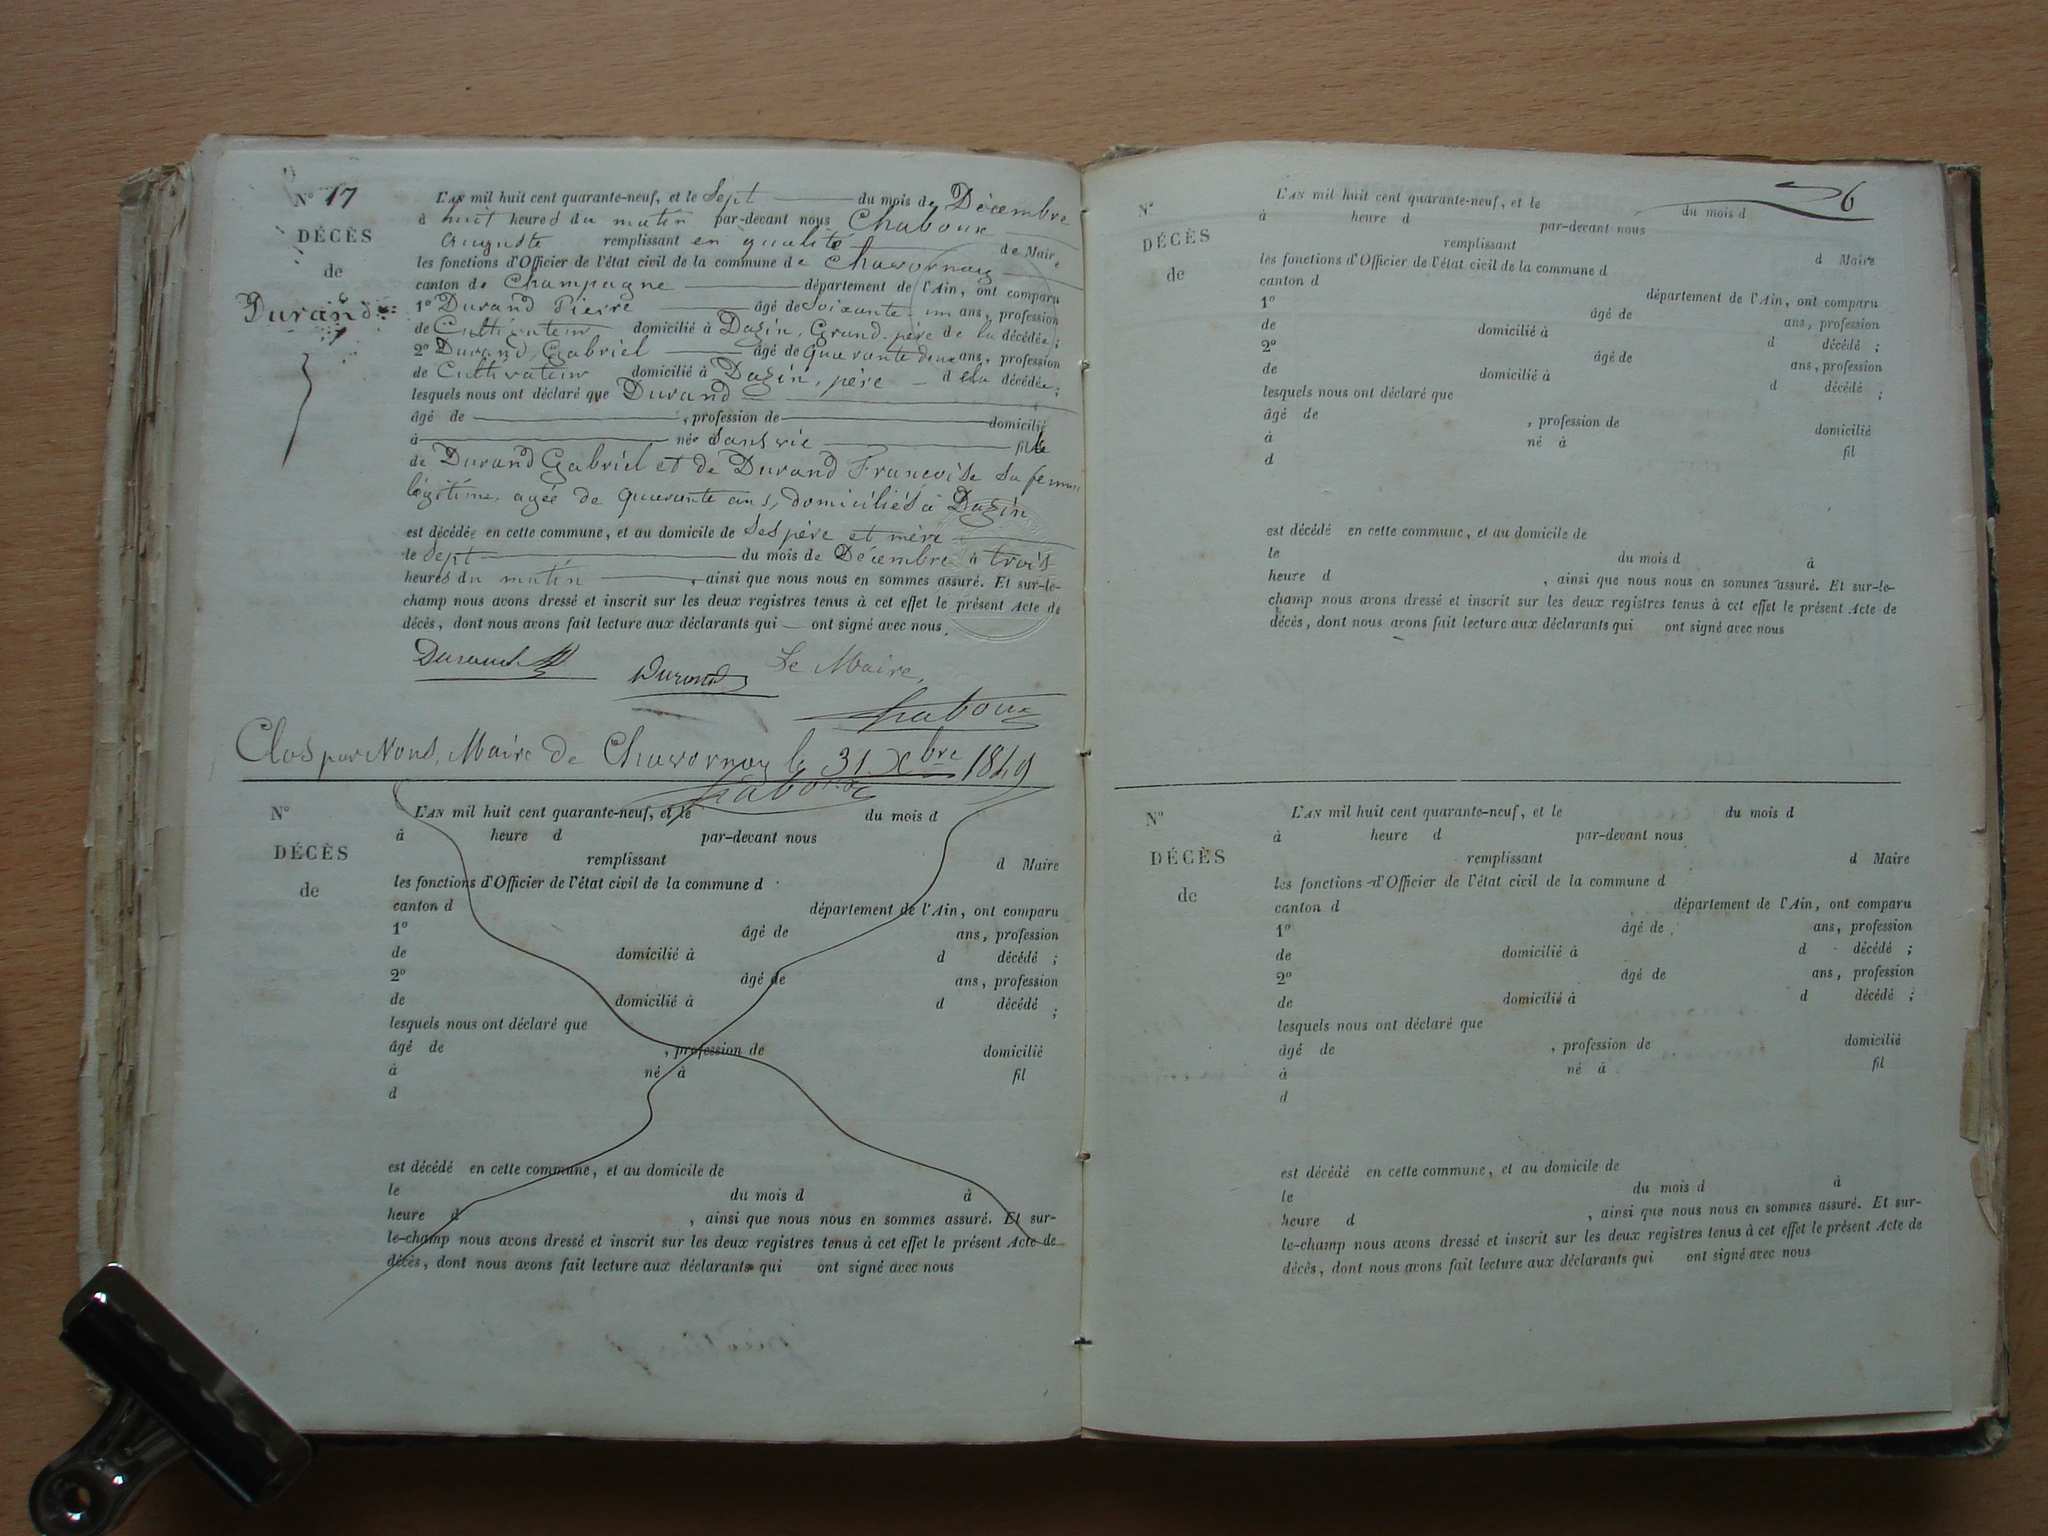 N° 17
DÉCÈS
de
Durand
L'AN mil huit cent quarante-neuf, et le Sept du mois de Décembre
à huit heures du matin par-devant nous Chaboux
Auguste remplissant en qualité de Maire
les fonctions d'Officier de l'état civil de la commune de Chavornay
canton de Champagne département de l'Ain, ont comparu
1° Durand Pierre âgé de Soixante-un ans, profession
de Cultivateur domicilié à Dazin, Grand-père de la décédée ;
2° Durand Gabriel âgé de quarante deux ans, profession
de Cultivateur domicilié à Dazin, père de la décédée ;
lesquels nous ont déclaré que Durand
âgé de , profession de domicilié
à née Sans vie fille
de Durand Gabriel et de Durand Francoise sa femme
légitime, agée de quarante ans, domiciliés à Dazin
est décédée en cette commune, et au domicile de Ses père et mère
le Sept du mois de Décembre à trois
heures du matin , ainsi que nous nous en sommes assuré. Et sur-le-
champ nous avons dressé et inscrit sur les deux registres tenus à cet effet le présent Acte de
décès, dont nous avons fait lecture aux déclarants qui ont signé avec nous.
Durand Durand Le Maire,
Chaboux
Clos par Nous, Maire de Chavornay le 31 Xbre 1849
Chaboux
N°
DÉCÈS
de
L'AN mil huit cent quarante-neuf, et le du mois d
à heure d par-devant nous
remplissant d Maire
les fonctions d'Officier de l'état civil de la commune d
canton d département de l'Ain, ont comparu
1° âgé de ans, profession
de domicilié à d décédé ;
2° âgé de ans, profession
de domicilié à d décédé ;
lesquels nous ont déclaré que
âgé de , profession de domicilié
à né à fil
d
est décédé en cette commune, et au domicile de
le du mois d à
heure d , ainsi que nous nous en sommes assuré. Et sur-
le-champ nous avons dressé et inscrit sur les deux registres tenus à cet effet le présent Acte de
décès, dont nous avons fait lecture aux déclarants qui ont signé avec nous
N°
DÉCÈS
de
L'AN mil huit cent quarante-neuf, et le du mois d
à heure d par-devant nous
remplissant d Maire
les fonctions d'Officier de l'état civil de la commune d
canton d département de l'Ain, ont comparu
1° âgé de ans, profession
de domicilié à d décédé ;
2° âgé de ans, profession
de domicilié à d décédé ;
lesquels nous ont déclaré que
âgé de , profession de domicilié
à né à fil
d
est décédé en cette commune, et au domicile de
le du mois d à
heure d , ainsi que nous nous en sommes assuré. Et sur-le-
champ nous avons dressé et inscrit sur les deux registres tenus à cet effet le présent Acte de
décès, dont nous avons fait lecture aux déclarants qui ont signé avec nous
N°
DÉCÈS
de
L'AN mil huit cent quarante-neuf, et le du mois d
à heure d par-devant nous
remplissant d Maire
les fonctions d'Officier de l'état civil de la commune d
canton d département de l'Ain, ont comparu
1° âgé de ans, profession
de domicilié à d décédé ;
2° âgé de ans, profession
de domicilié à d décédé ;
lesquels nous ont déclaré que
âgé de , profession de domicilié
à né à fil
d
est décédé en cette commune, et au domicile de
le du mois d à
heure d , ainsi que nous nous en sommes assuré. Et sur-
le-champ nous avons dressé et inscrit sur les deux registres tenus à cet effet le présent Acte de
décès, dont nous avons fait lecture aux déclarants qui ont signé avec nous